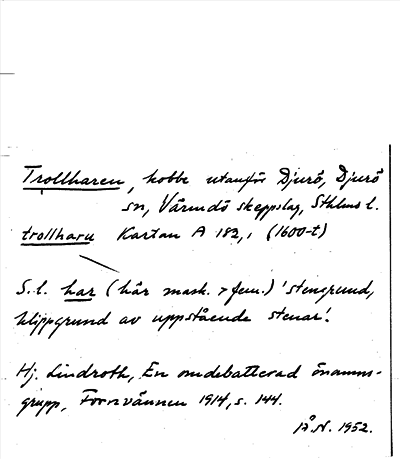 Trollharen, kobbe utanför Djurö, Djurö
sn, Värmdö skeppslag, Sthlms l.
trollharu Kartan A 182,1 (1600-t)
S.l. har (här mask. > fem.) 'stengrund,
klippgrund av uppstående stenar'.
Hj. Lindroth, En omdebatterad önamns-
grupp, Fornvännen 1914, s. 144.
1952.